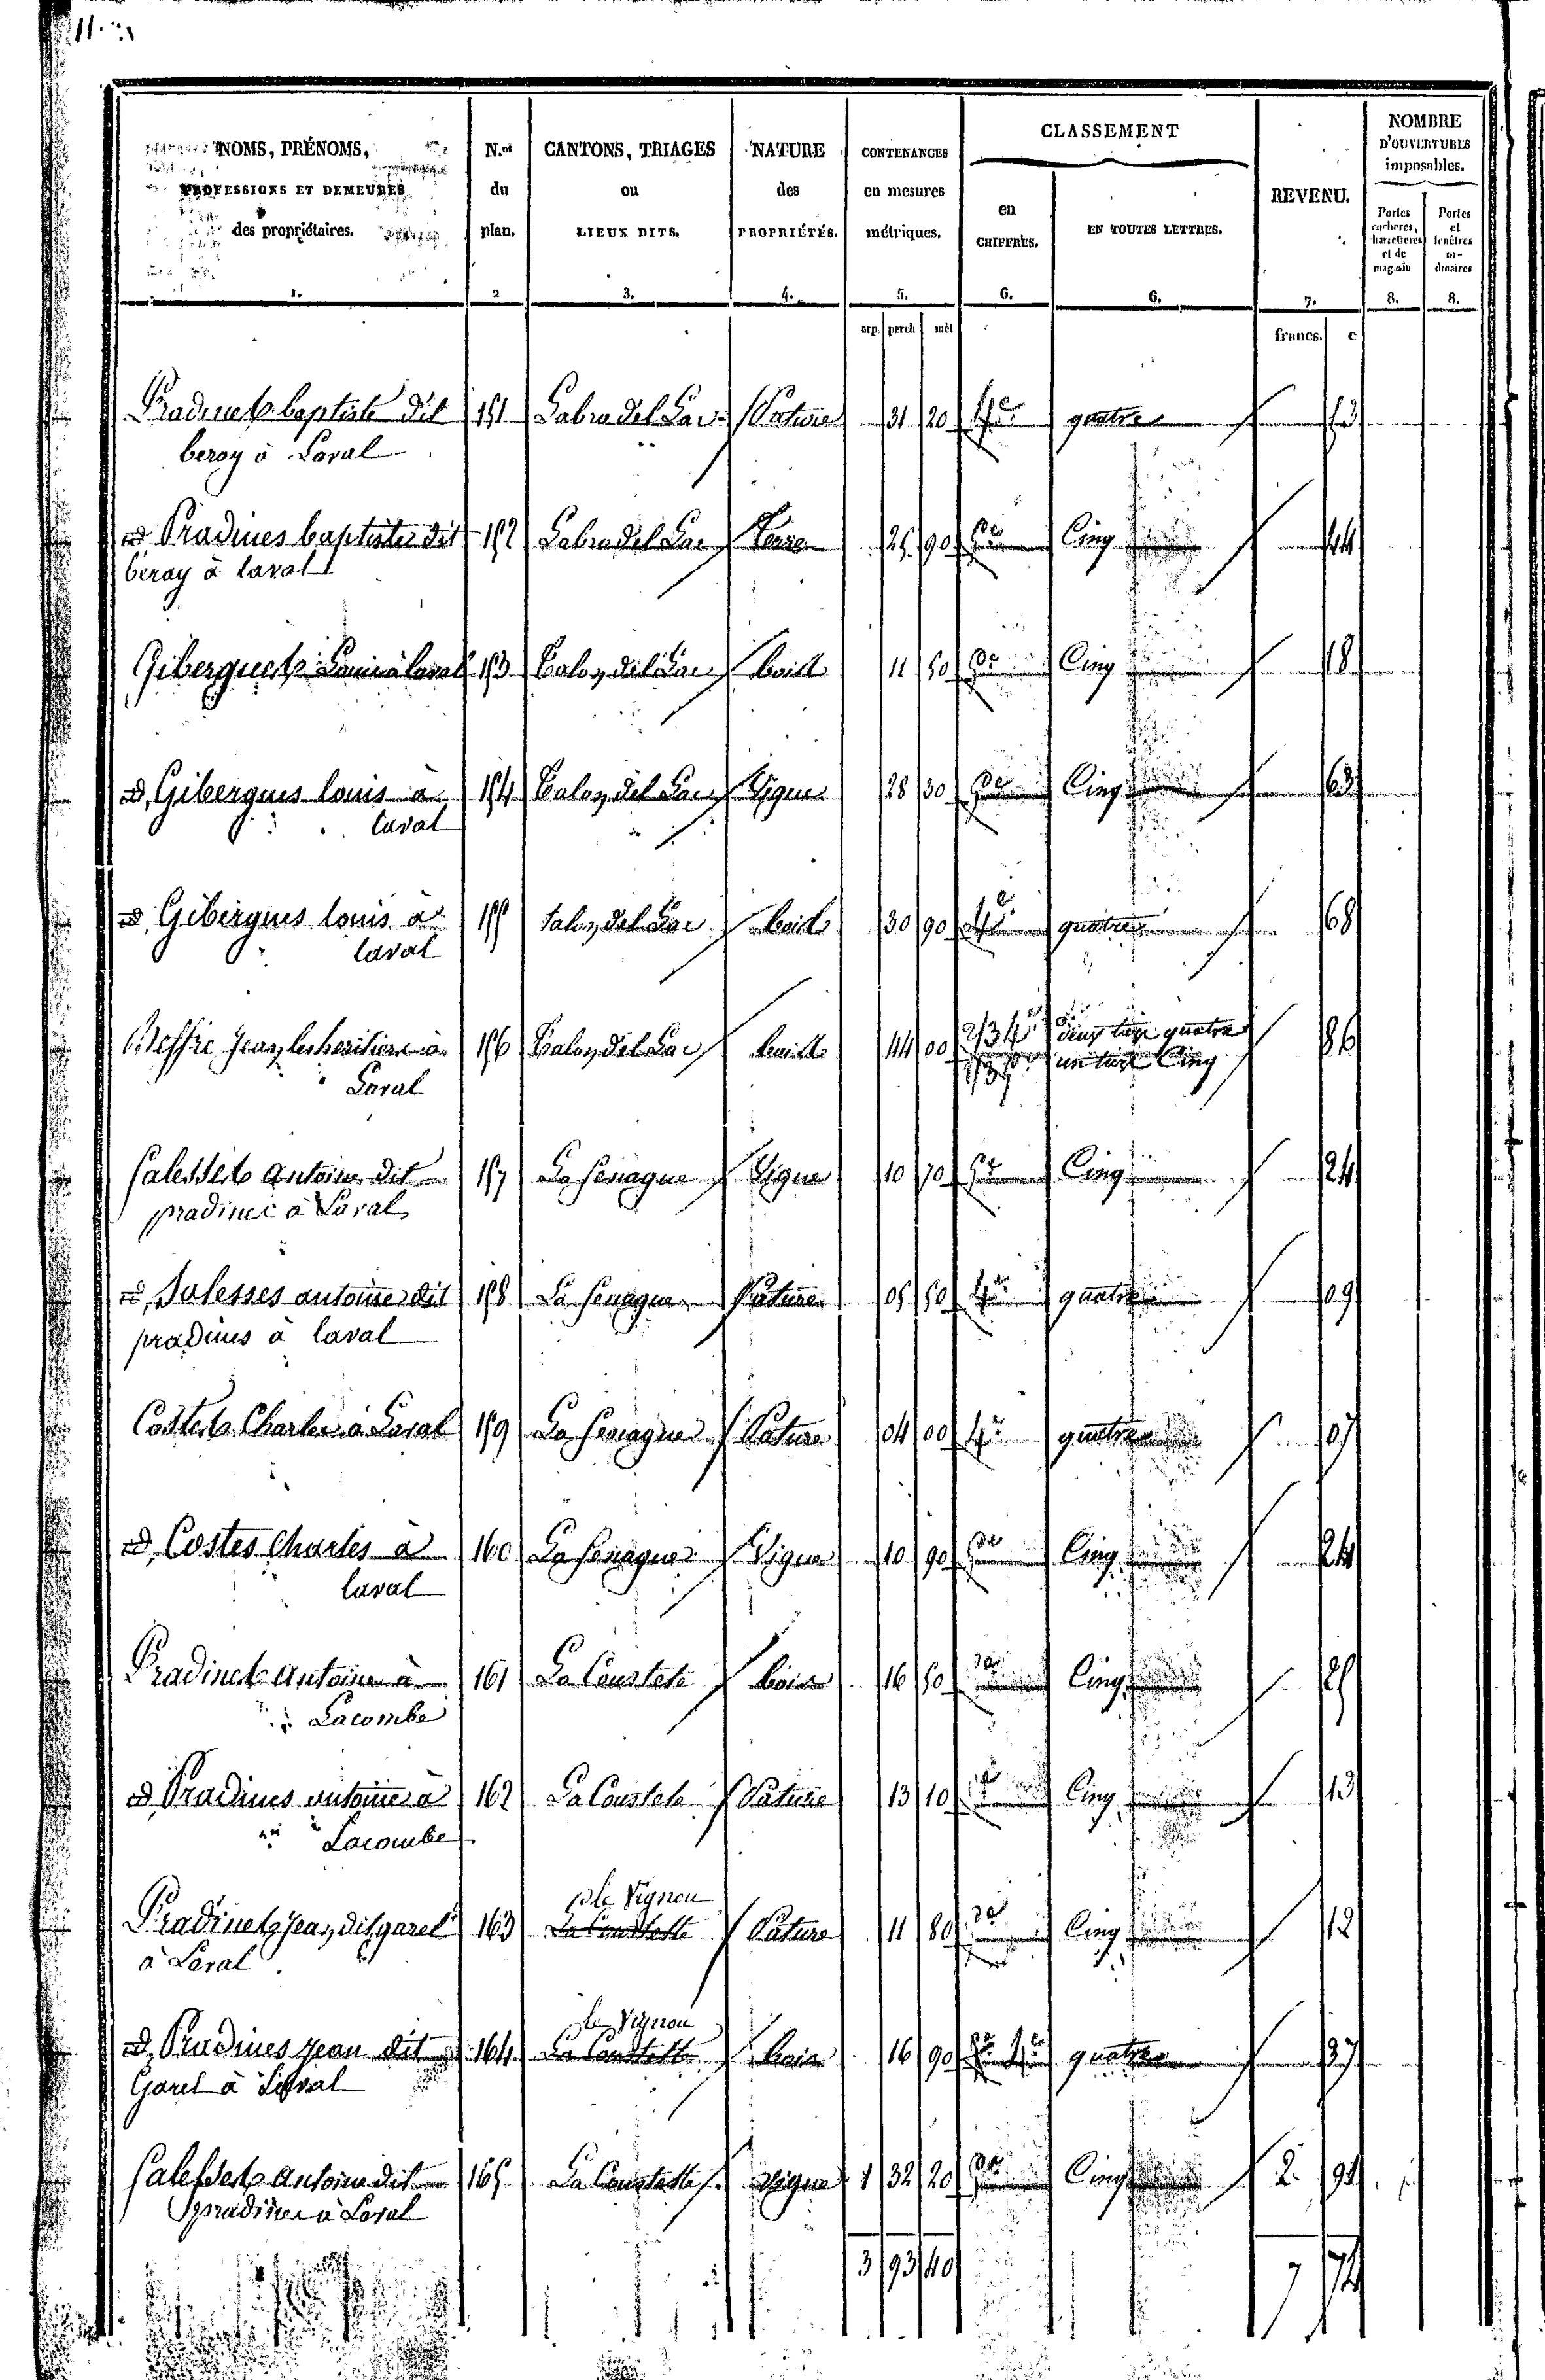 11.
NOMS, PRÉNOMS,
PROFESSIONS ET DEMEURES
des propriétaires.
1.
N.os
du
plan.
2
CANTONS, TRIAGES
ou
LIEUX DITS.
3.
NATURE
des
PROPRIÉTÉS.
4.
CONTENANCES
en mesures
métriques.
5.
CLASSEMENT
en
CHIFFRES.
6.
EN TOUTES LETTRES.
6.
REVENU.
7.
NOMBRE
D'OUVERTURES
imposables.
Portes
cocheres,
charetieres
et de
magasin
8.
Portes
et
fenêtres
or-
dinaires
8.
arp. perch mèt francs. c
Pradines baptiste dit 151 Labro del Lac Pature 31 20 4e quatre 53
beray à Laval
id Pradines baptiste dit 152 Labro del Lac Terre 25 90 5e Cinq 44
beray à laval
Gibergues Louis à laval 153 del Lac bois 11 50 5e Cinq 18
id, Gibergues louis à 154 del Lac Vigne 28 30 5e Cinq 63
laval
id, Gibergues louis à 155 del Lac bois 30 90 4e quatre 68
laval
Jean les heritiers à 156 del Lac bois 44 00 2/3 4e deux tiers quatre 86
Laval 1/3 5e un tiers Cinq
Salesses Antoine dit 157 La Senague Vigne 10 70 5e Cinq 24
pradines à Laval
id, Salesses antoine dit 158 La Senague Pature 05 50 4e quatre 09
pradines à laval
Costes Charles à Laval 159 La Senague Pature 04 00 4e quatre 07
id, Costes Charles à 160 La Senague Vigne 10 90 5e Cinq 24
laval
Pradines Antoine à 161 La Coustete bois 16 50 5e Cinq 25
Lacombe
id, Pradines antoine à 162 La Coustete Pature 13 10 5e Cinq 13
Lacombe
le Vignou
Pradines Jean dit garel 163 La Coustette Pature 11 80 5e Cinq 12
à Laval
le Vignou
id, Pradines jean dit 164 La Coustette bois 16 90 4e quatre 37
Garel à Laval
Salesses Antoine dit 165 La Coustette Vigne 1 32 20 5e Cinq 2 91
pradines à Laval
3 93 40 7 74